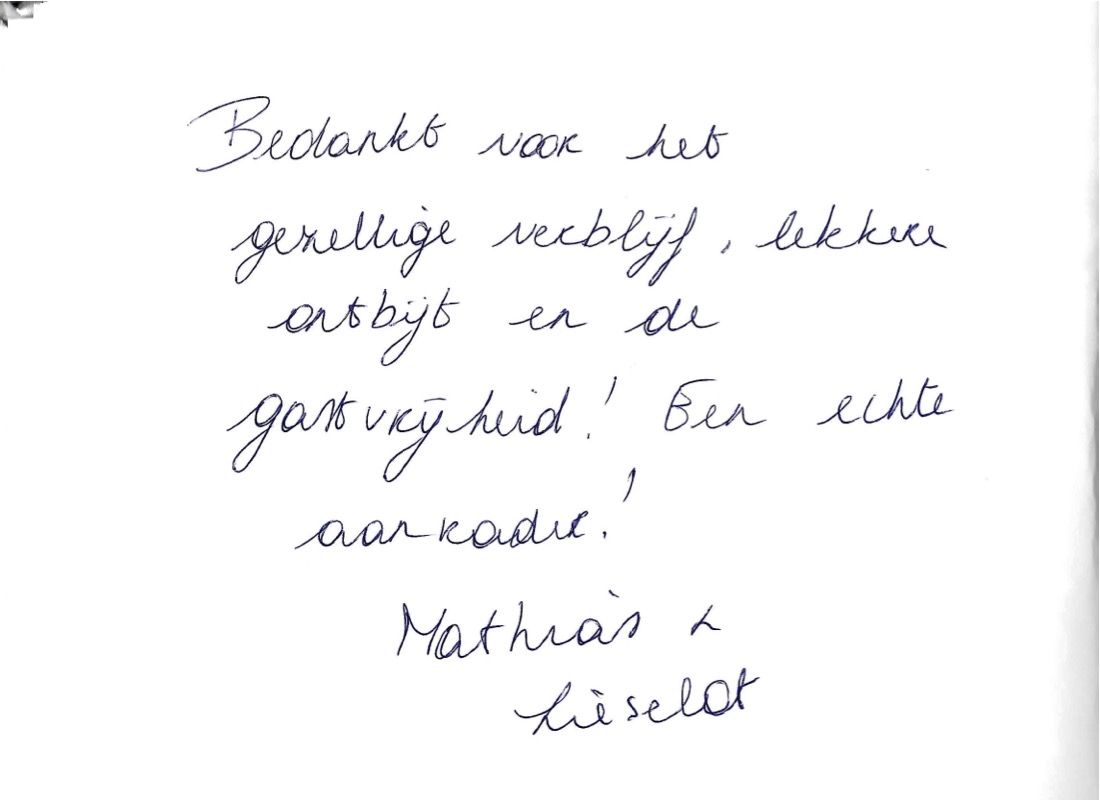 Bedankt voor het
gezellige verblijf, lekkere
ontbijt en de
gastvrijheid! Een echte
aanrader!
Mathias &
Lieselot